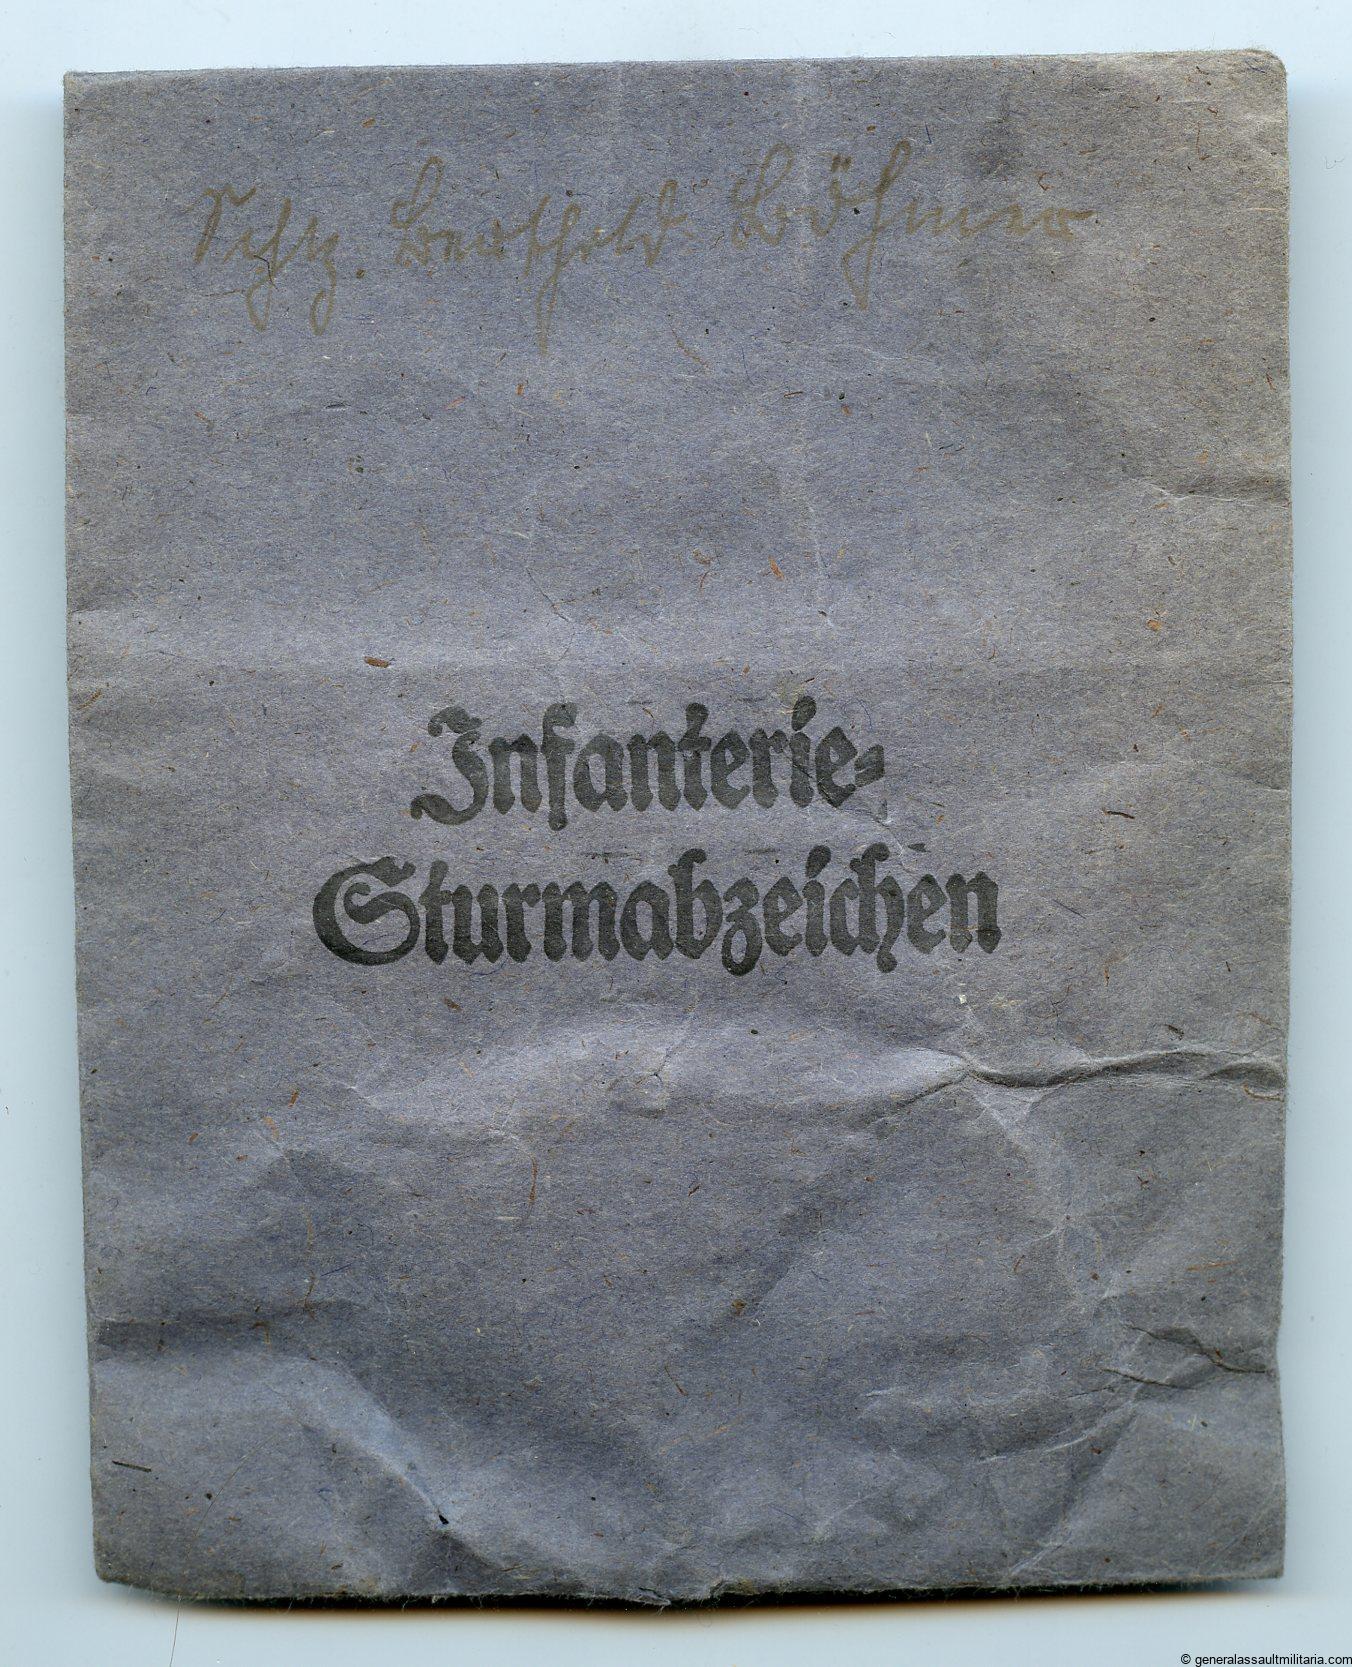 Schtz. Berthold Böhmer
Infanterie-
Sturmabzeichen
© generalassaultmilitaria.com